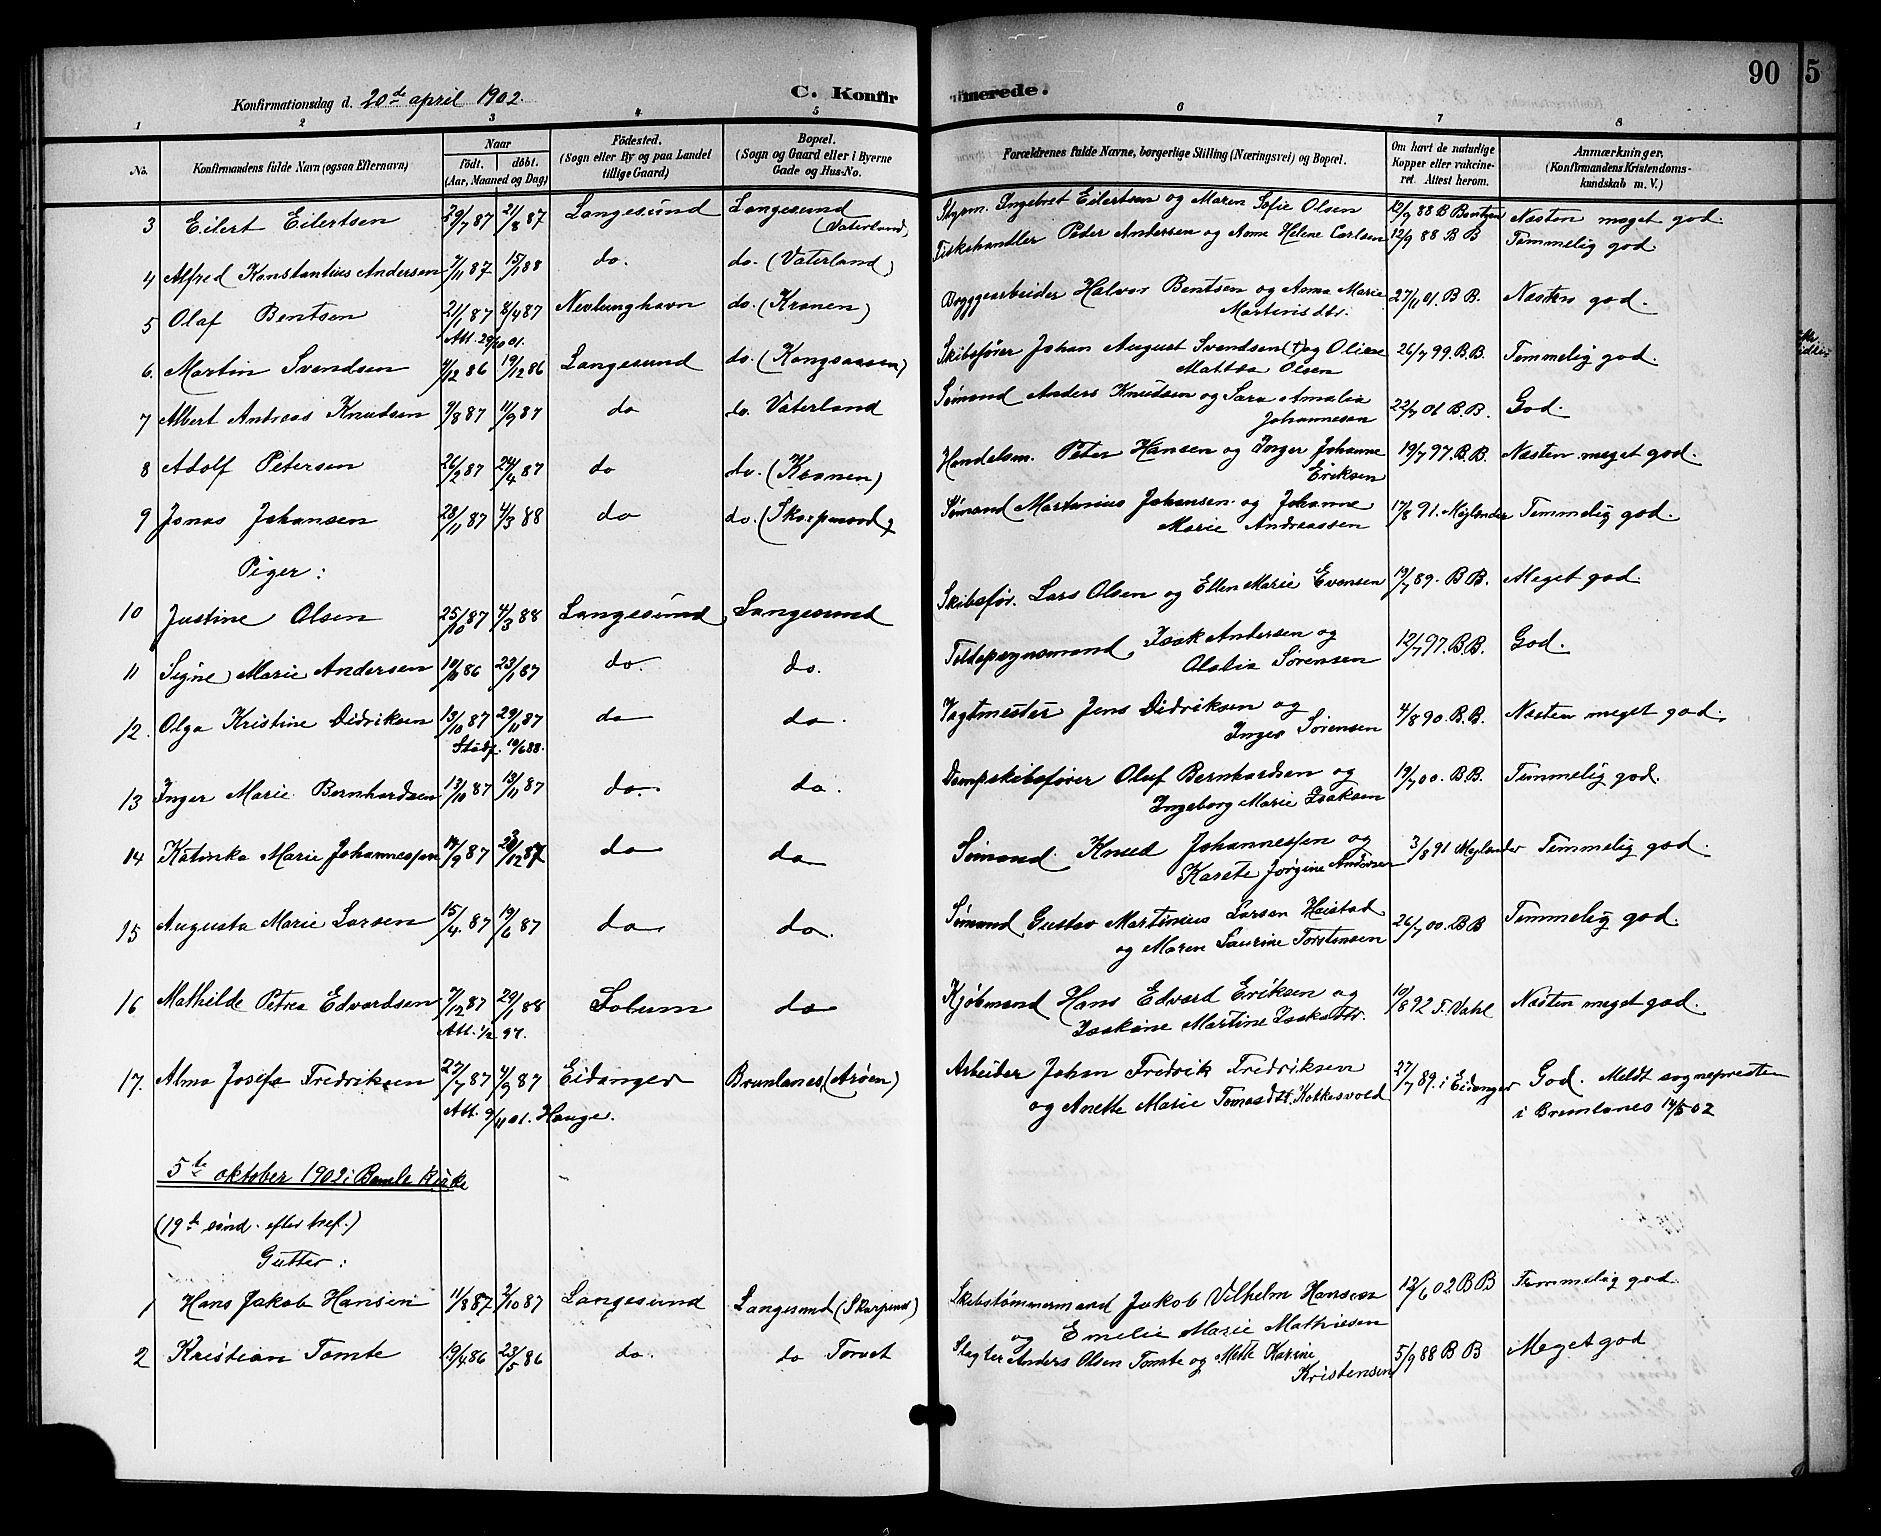 90
5
Konfirmationsdag d. 20de april 1902.
C. Konfirmerede.
1 2 3 4 5 6 7 8
No. Konfirmandens fulde Navn (ogsaa Efternavn) Naar født. døbt. (Aar, Maaned og Dag) Fødested. (Sogn eller By og paa Landet tillige Gaard) Bopæl. (Sogn og Gaard eller i Byerne Gade og Hus-No. Forældrenes fulde Navne, borgerlige Stilling (Næringsvei) og Bopæl. Om havt de naturlige Kopper eller vakcineret. Attest herom. Anmærkninger. (Konfirmandens Kristendomskundskab m. V.)
3 Eilert Eilertsen 29/7 87 21/8 87 Langesund Langesund (Vaterland) Styrm. Ingebret Eilertsen og Maren Sofie Olsen 12/9 88 B Bentzen Næsten meget god.
4 Alfred Konstantius Andersen 7/11 87 15/1 88 do. do. (Vaterland) Fiskehandler Peder Andersen og Anne Helene Carlsen 12/9 88 B B Temmelig god
5 Olaf Bentsen 21/1 87 8/4 87 Nevlunghavn do. (Kronen) Bryggearbeider Halvor Bentsen og Anna Marie
Att. 29/10 01. Martinisdtr. 27/11 01. B. B. Næsten god.
6. Martin Svendsen 4/12 86 19/12 86 Langesund do. (Kongsaasen) Skibsfører Johan August Svendsen (†) og Oline
Mattea Olsen 26/7 99. B.B. Temmelig god.
7 Albert Andreas Knudsen 9/8 87 11/9 87 do do. Vaterland Sømand Anders Knudsen og Sara Amalia
Johannesen 22/7 01 B.B. God.
8 Adolf Petersen 26/2 87 24/4 87 do do. (Kronen) Handelsm. Peter Hansen og Inger Johanne
Eriksen 19/7 97. B.B. Næsten meget god.
9 Jonas Johansen 28/11 87 4/3 88 do do. (Skarpenord) Sømand Martinius Johansen og Johanne
Marie Andreassen 17/8 91. Møjlænder Temmelig god.
Piger:
10 Justine Olsen 25/10 87 4/3 88 Langesund Langesund Skibsfør. Lars Olsen og Ellen Marie Evensen 19/7 89. B B. Meget god.
11 Signe Marie Andersen 19/11 86 23/1 87 do do. Toldopsynsmand Isak Andersen og
Olalia Sørensen 12/7 97. B.B. God.
12. Olga Kristine Didriksen 13/10 87 29/11 87 do do. Vagtmester Jens Didriksen og
Stadf. 10/6 88. Inger Sørensen 4/8 90. B.B. Næsten meget god.
13 Inger Marie Bernhardsen 13/10 87 13/11 87 do. do. Dampskibsfører Oluf Bernhardsen og
Ingeborg Marie Isaksen 19/7 00. B.B. Temmelig god.
14 Katinka Marie Johannessen 14/9 87 23/12 87 do do Sømand Knud Johannessen og
Karete Jørgine Andersen 3/8 91 Møjlænder Temmelig god.
15 Augusta Marie Larsen 15/4 87 19/6 87 do do. Sømand Gustav Martinius Larsen Heistad
og Maren Laurine Torstensen 26/7 00. B B Temmelig god.
16 Mathilde Petrea Edvardsen 7/12 87 29/1 88 Solum do Kjøbmand Hans Edvard Eriksen og
Att. 1/2 97. Isakine Martine Isaksdtr. 10/8 92 F. Vahl Næsten meget god.
17. Alma Josefa Fredriksen 27/7 87 4/9 87 Eidanger Brunlanes (Arøen) Arbeider Johan Fredrik Fredriksen 27/7 89. i Eidanger God. Meldt sognepresten
Att. 9/11 01. Hauge. og Anette Marie Tomasdtr. Kokkesvold i Brunlanes 14/5 02
5te oktober 1902 i Bamle Kirke
(19de sønd. efter tref.)
Gutter:
1 Hans Jakob Hansen 11/8 87 2/10 87 Langesund Langesund (Skarpnd) Skibstømmermand Jakob Vilhelm Hansen
og Emelie Marie Mathisen 12/6 02 B B Temmelig god.
2 Kristian Tomte 19/4 86 23/5 86 do. do Torvet Slagter Anders Olsen Tomte og Mette Karine
Kristensen 5/9 88 B B Meget god